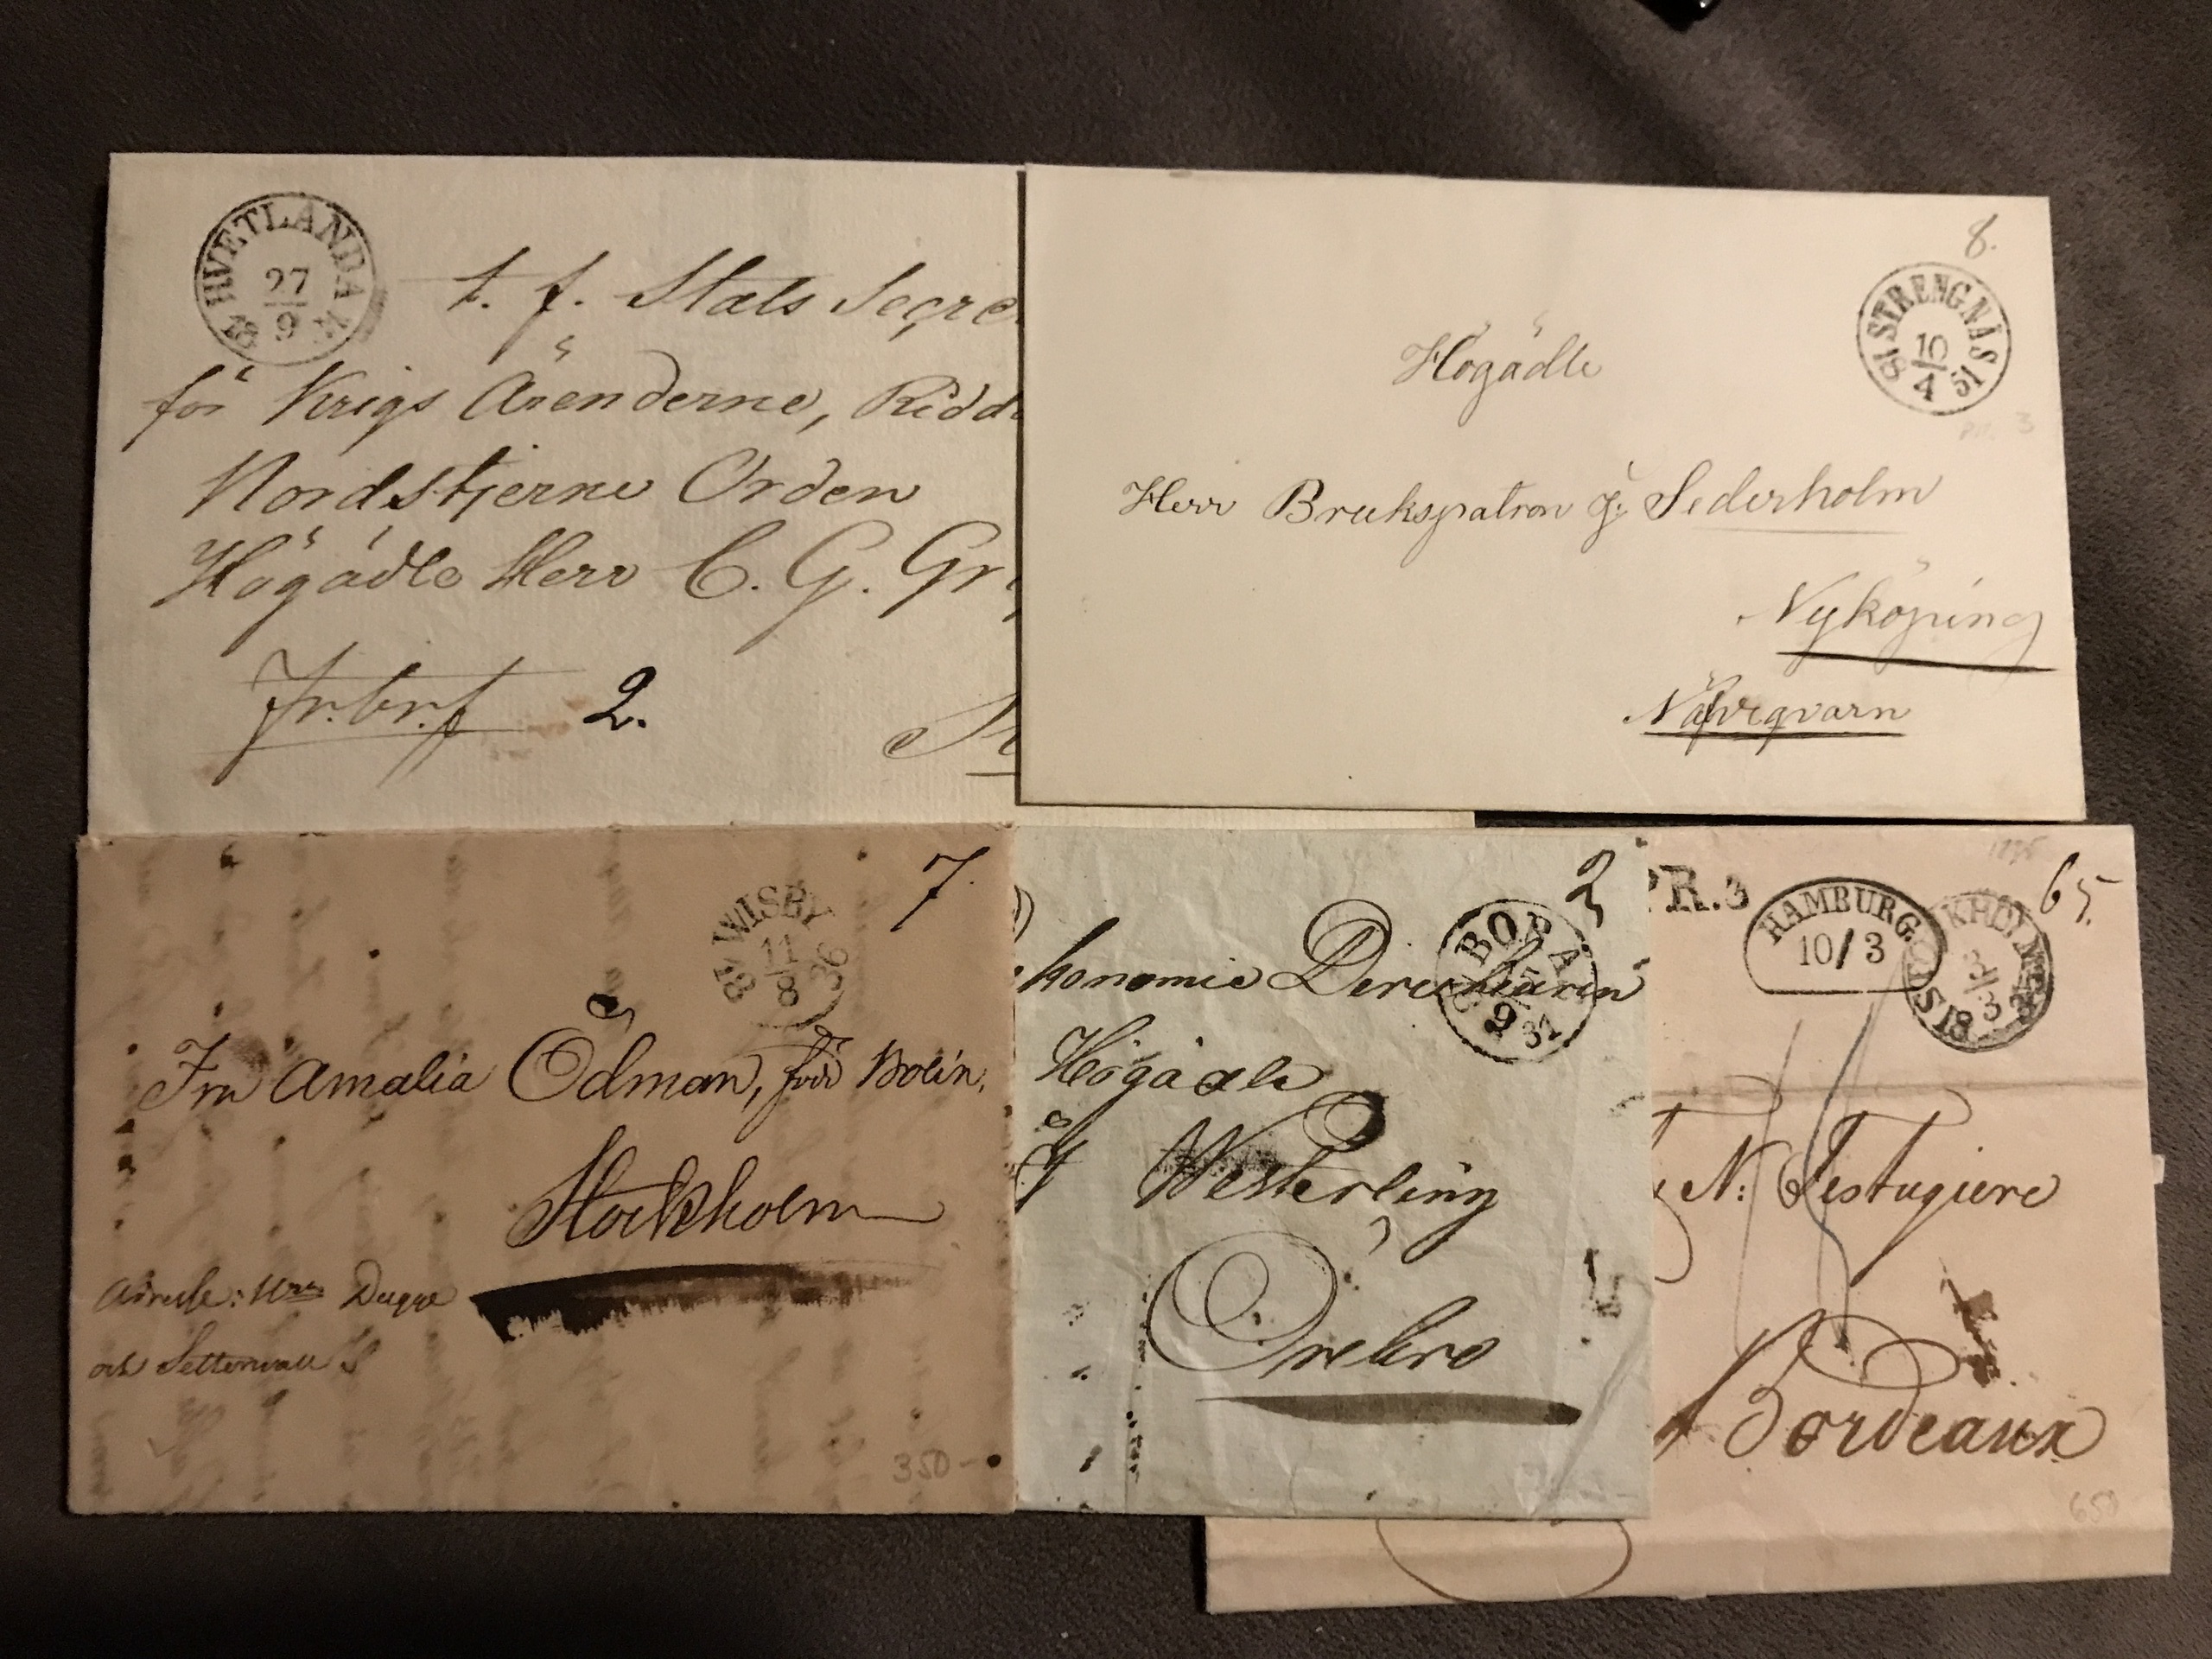 HVETLANDA
27
9
18
t. f. Stats Secre
för Krigs Ärenderne, Ridd
Nordstjerne Orden
Högädle Herr C. G. Gr
Fr.br.f 2.
8.
STRENGNÄS
10
4
18 51
Högädle
Herr Brukspatron J: Sederholm
Nyköping
Näfveqvarn
7.
WISBY
11
8
18 36
Fru Amalia Ödman, född Bolin,
Stockholm
Adresse: Hrar
och Settervall
350-
2
BORÅ
9
konomie Direcktören
Högädle
J Westerling
Örebro
PR.3
HAMBURG.
10/3
65.
3
3
18
N: Testugiere
Bordeaux
650